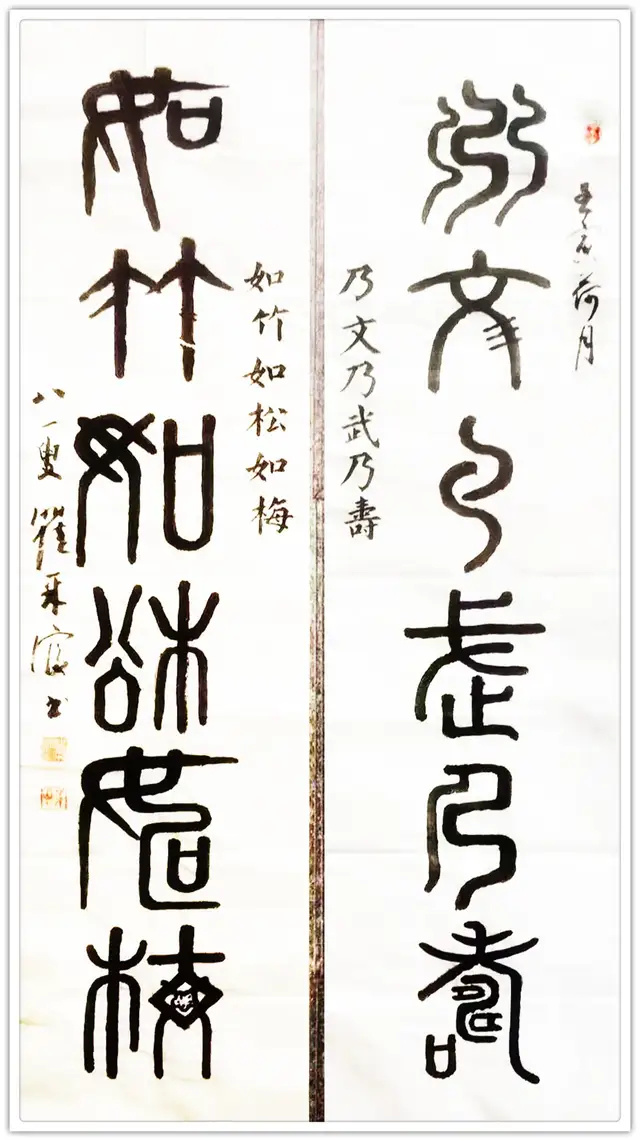 壬寅荷月
乃文乃武乃壽
乃文乃武乃壽
如竹如松如梅
如竹如松如梅
八一叟瞿书